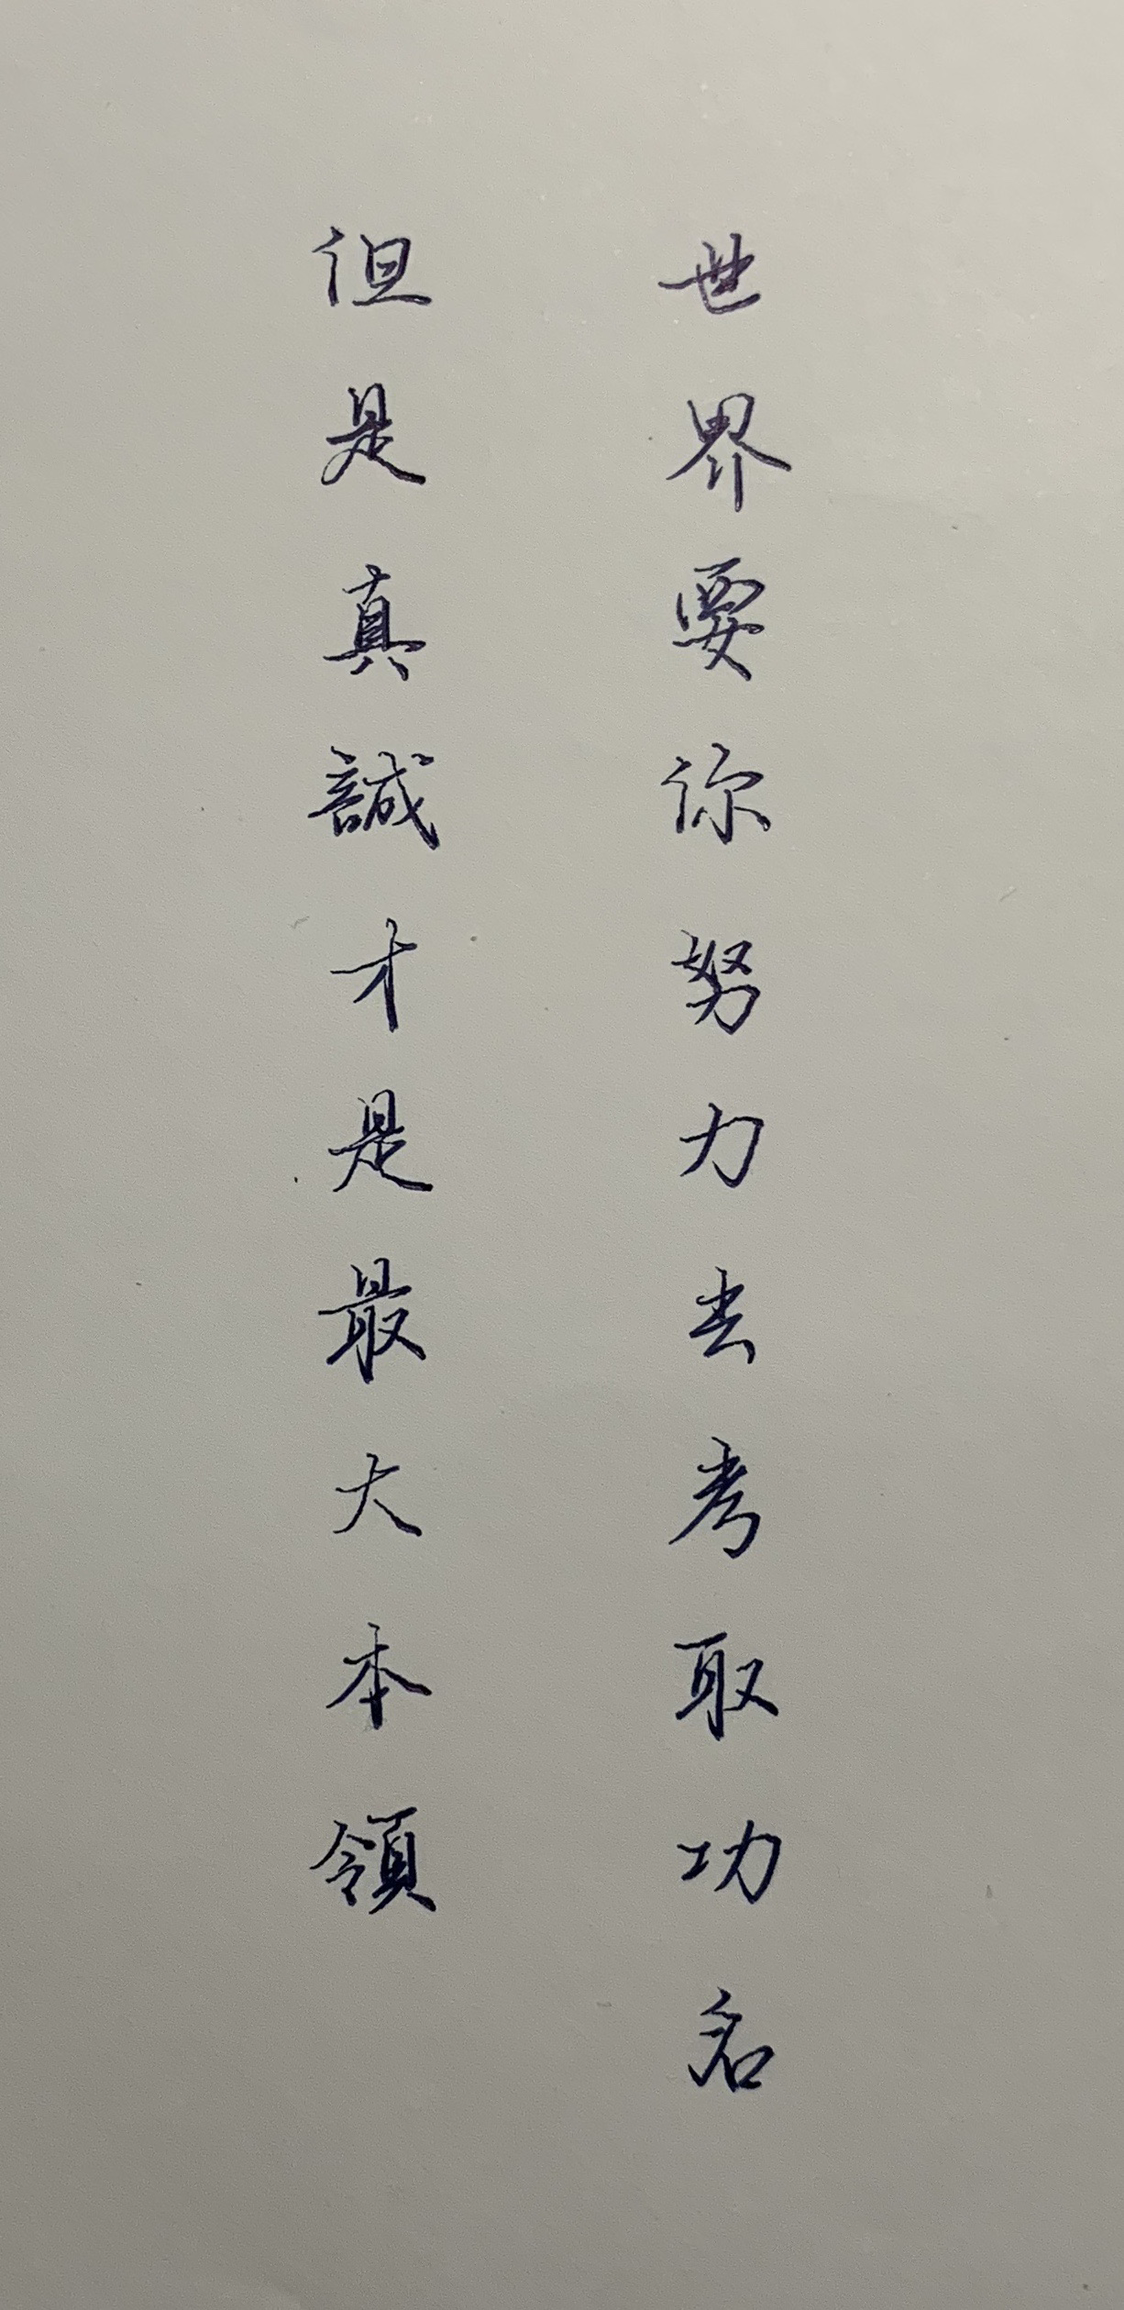 世界要你努力去考取功名
但是真誠才是最大本領